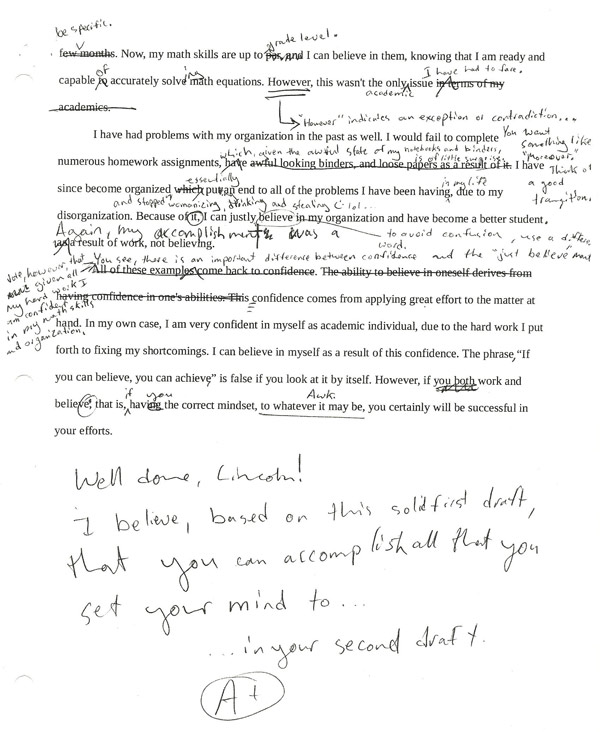 be specific.
grade level.
few months. Now, my math skills are up to par, and I can believe in them, knowing that I am ready and
of ing I have had to face.
capable to accurately solve math equations. However, this wasn't the only issue in terms of my
academic
academics.
"However" indicates an exception or contradiction...
I have had problems with my organization in the past as well. I would fail to complete
You want something like "Moreover."
which, given the awful state of my notebooks and binders, is of little surprise.
numerous homework assignments, have awful looking binders, and loose papers as a result of it. I have
Think of a good transition.
essentially in my life
since become organized which put an end to all of the problems I have been having, due to my
and stopped womanizing, thinking and stealing
disorganization. Because of it, I can justly believe in my organization and have become a better student,
Again, my accomplishment was a
to avoid confusion, use a different word.
as a result of work, not believing.
You see, there is an important difference between confidence and the "just believe"
All of these examples come back to confidence. The ability to believe in oneself derives from
Note, however, that given all my hard work I am confident in my math skills and organization.
having confidence in one's abilities. This confidence comes from applying great effort to the matter at
hand. In my own case, I am very confident in myself as academic individual, due to the hard work I put
forth to fixing my shortcomings. I can believe in myself as a result of this confidence. The phrase, "If
you can believe, you can achieve" is false if you look at it by itself. However, if you both work and
if you Awk.
believe, that is, having the correct mindset, to whatever it may be, you certainly will be successful in
your efforts.
Well done, Lincoln!
I believe, based on this solid first draft,
that you can accomplish all that you
set your mind to...
...in your second draft.
A+